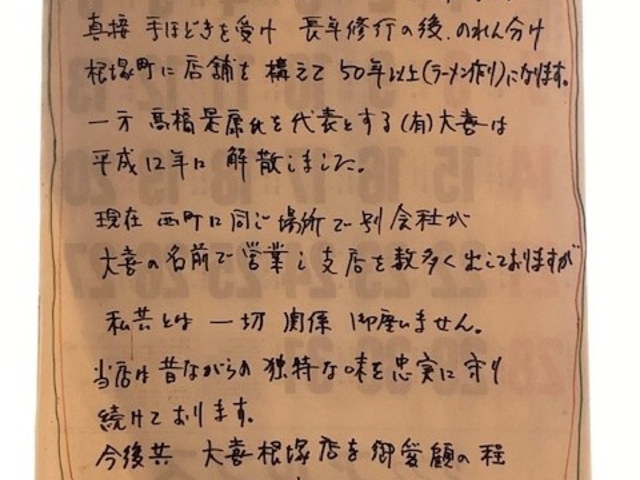 直接 手ほどきを受け 長年修行の後、のれん分け
根塚町に店舗を構えて50年以上(ラーメン作り)になります。
一方 高橋是康氏を代表とする(有)大喜は
平成12年に解散しました。
現在 西町に同じ場所で別会社が
大喜の名前で営業し支店を数多く出しておりますが
私共とは 一切 関係 御座いません。
当店は昔ながらの独特な味を忠実に守り
続けております。
今後共 大喜根塚店を御愛顧の程